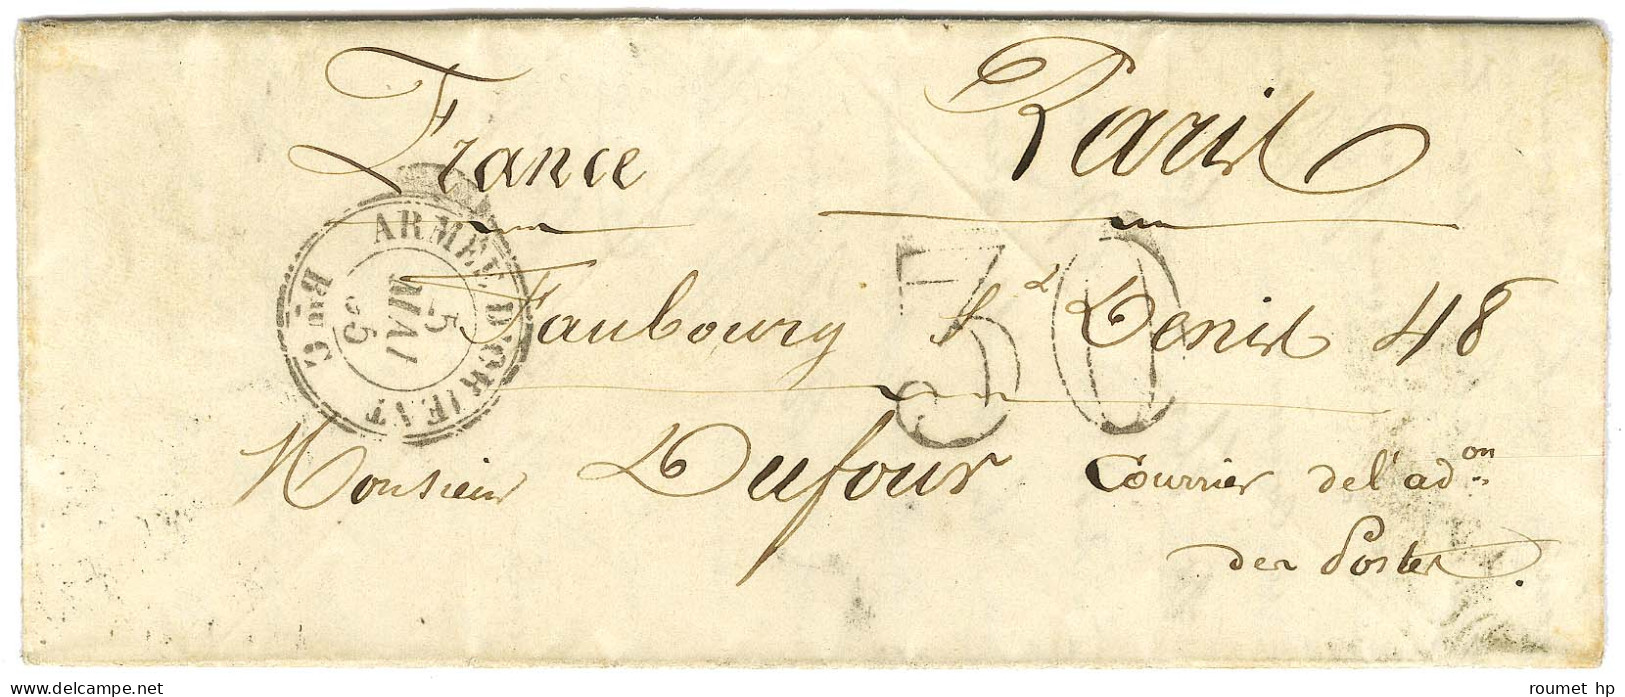 France Paris
ARMEE D'ORIENT
Bau G
5
MAI
55
30
Faubourg St Denis 48
Monsieur Dufour Courrier de l'adon
des Postes.
roumet hp